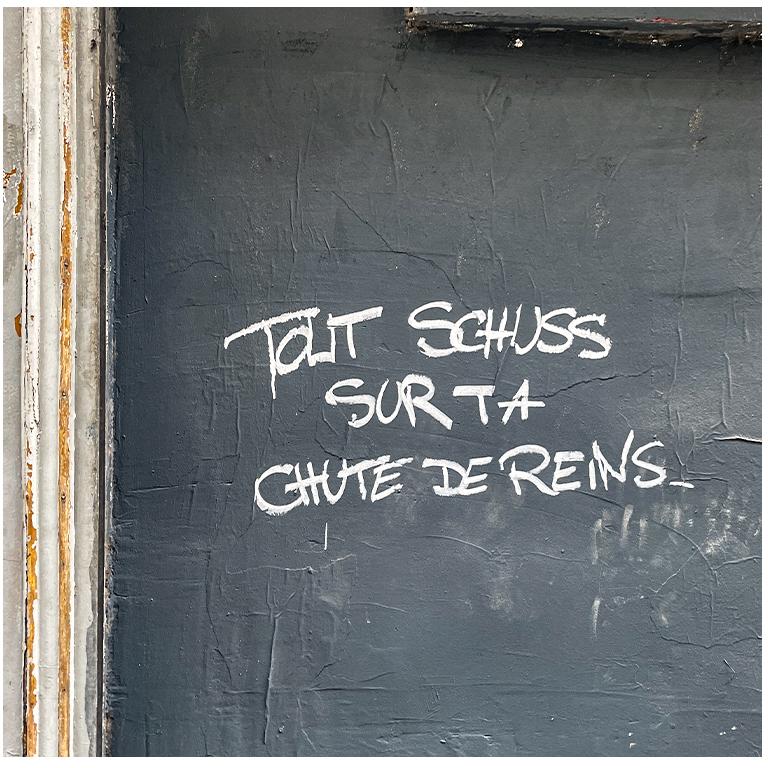 TOUT SCHUSS
SUR TA
CHUTE DE REINS_